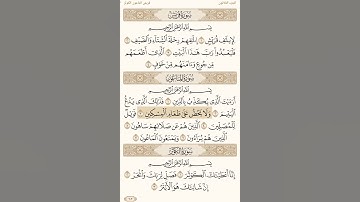 سُورَةُ قُرَيْشٍ
بِسْمِ اللَّهِ الرَّحْمَٰنِ الرَّحِيمِ
لِإِيلَافِ قُرَيْشٍ ۝ إِيلَافِهِمْ رِحْلَةَ الشِّتَاءِ وَالصَّيْفِ ۝
فَلْيَعْبُدُوا رَبَّ هَٰذَا الْبَيْتِ ۝ الَّذِي أَطْعَمَهُم
مِّن جُوعٍ وَآمَنَهُم مِّنْ خَوْفٍ ۝
سُورَةُ الْمَاعُونِ
بِسْمِ اللَّهِ الرَّحْمَٰنِ الرَّحِيمِ
أَرَأَيْتَ الَّذِي يُكَذِّبُ بِالدِّينِ ۝ فَذَٰلِكَ الَّذِي يَدُعُّ
الْيَتِيمَ ۝ وَلَا يَحُضُّ عَلَىٰ طَعَامِ الْمِسْكِينِ ۝ فَوَيْلٌ
لِّلْمُصَلِّينَ ۝ الَّذِينَ هُمْ عَن صَلَاتِهِمْ سَاهُونَ ۝
الَّذِينَ هُمْ يُرَاءُونَ ۝ وَيَمْنَعُونَ الْمَاعُونَ ۝
سُورَةُ الْكَوْثَرِ
بِسْمِ اللَّهِ الرَّحْمَٰنِ الرَّحِيمِ
إِنَّا أَعْطَيْنَاكَ الْكَوْثَرَ ۝ فَصَلِّ لِرَبِّكَ وَانْحَرْ ۝
إِنَّ شَانِئَكَ هُوَ الْأَبْتَرُ ۝